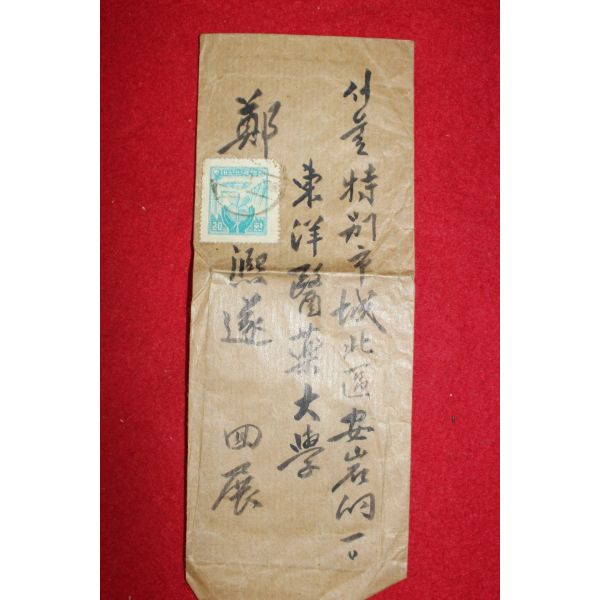 서울特別市城北區安岩洞
東洋醫薬大學
鄭熙遂 回展
20 환